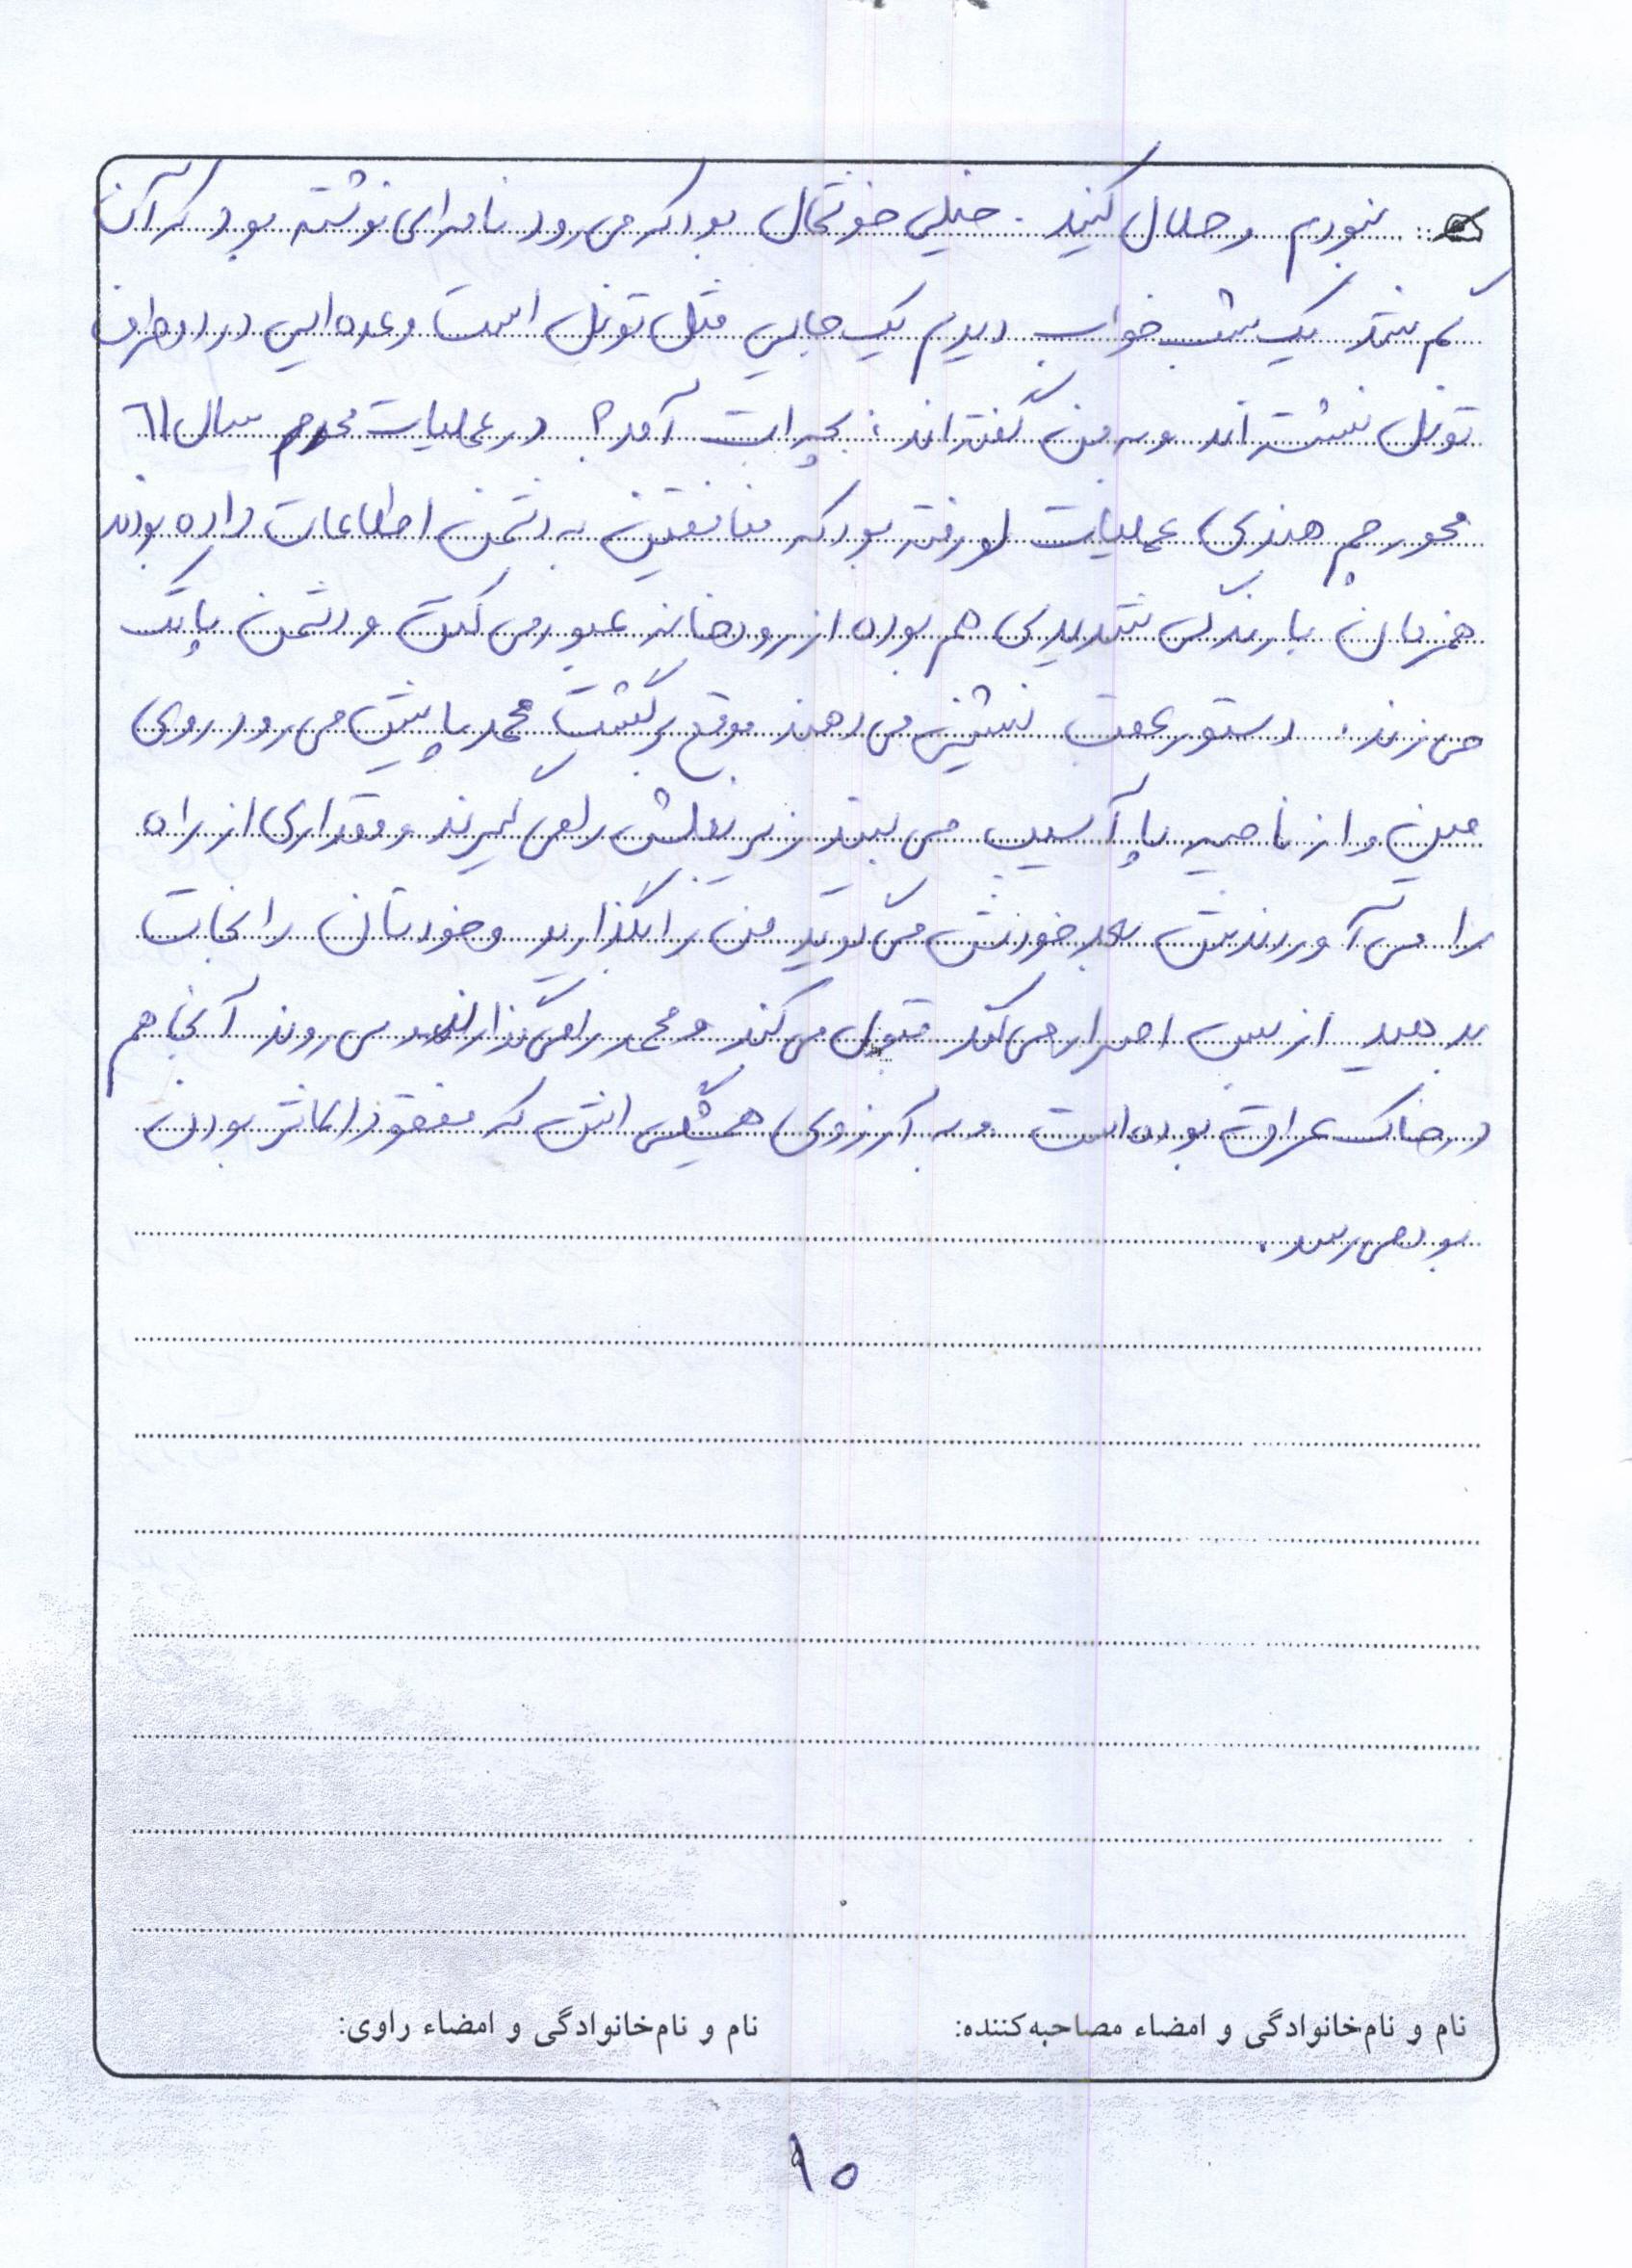 نبودم و حلال کنید. خیلی خوشحال بود که می رود نامه ای نوشته بود که آن
گم شد یک شب خواب دیدم یک جایی مثل تونل است و عده ایی در دو طرف
تونل نشسته اند و به من گفته اند: بچه ات آمد؟ در عملیات محرم سال ۶۱
محور چم هندی عملیات لو رفته بود که منافقین به دشمن اطلاعات داده بودند
همزمان بارندگی شدیدی هم بوده از رودخانه عبور می کنن و دشمن پاتک
می زند. دستور عقب نشینی می دهند موقع برگشت محمد پایش می رود روی
مین و از ناحیه پا آسیب می بیند زیر بغلش را می گیرند و مقداری از راه
را می آورندش بعد خودش می گوید من را بگذارید و خودتان را نجات
بدهید از بس اصرار می کند قبول می کند و محمد را می گذارند می روند آنجا هم
در خاک عراق بوده است و به آرزوی همیشگی اش که مفقودالاثر بودن
بود می رسد.
نام و نام‌خانوادگی و امضاء مصاحبه‌کننده: نام و نام‌خانوادگی و امضاء راوی: